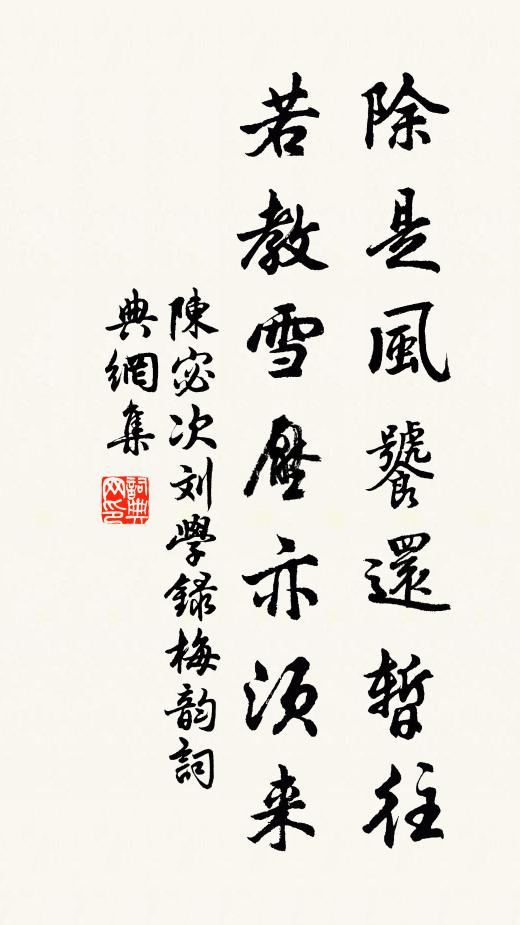 除是風饕還暫往
若教雪壓亦須来
陳宓次刘學録梅韵詞
典網集
詞典网印